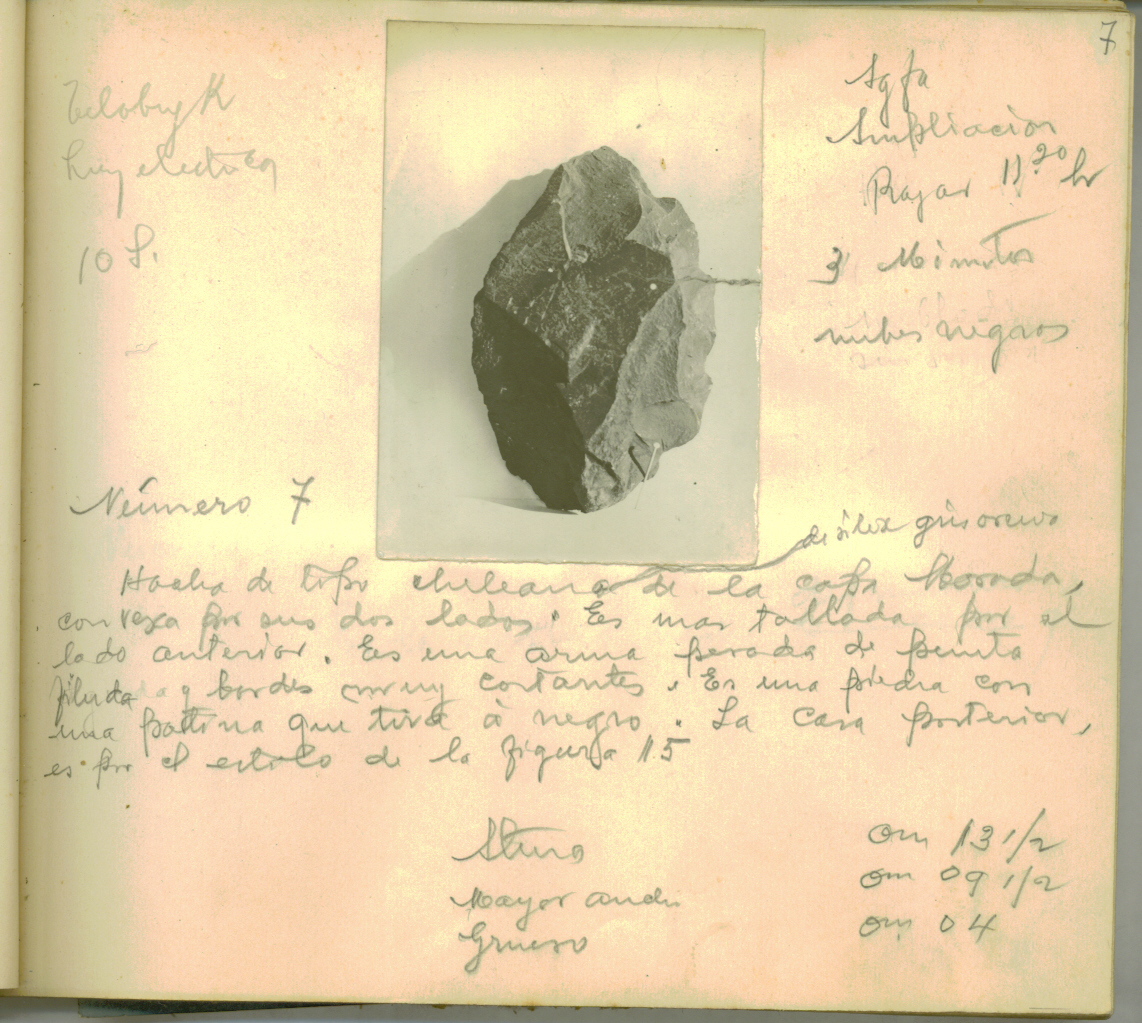 7
luz electrica
10 S.
Agfa
Ampliacion
Rajar 11 20 hr
3 Minutos
nubes negras
Número 7
de silex gris oscuro
Hacha de tipo chileana de la capa Morada,
convexa por sus dos lados. Es mas tallada por el
lado anterior. Es una arma pesada de punta
filuda y bordes muy cortantes. Es una piedra con
una patina que tira á negro. La cara posterior,
es por el estilo de la figura 15
Altura 0m 13 1/2
Mayor ancho 0m 09 1/2
Grueso 0m 04